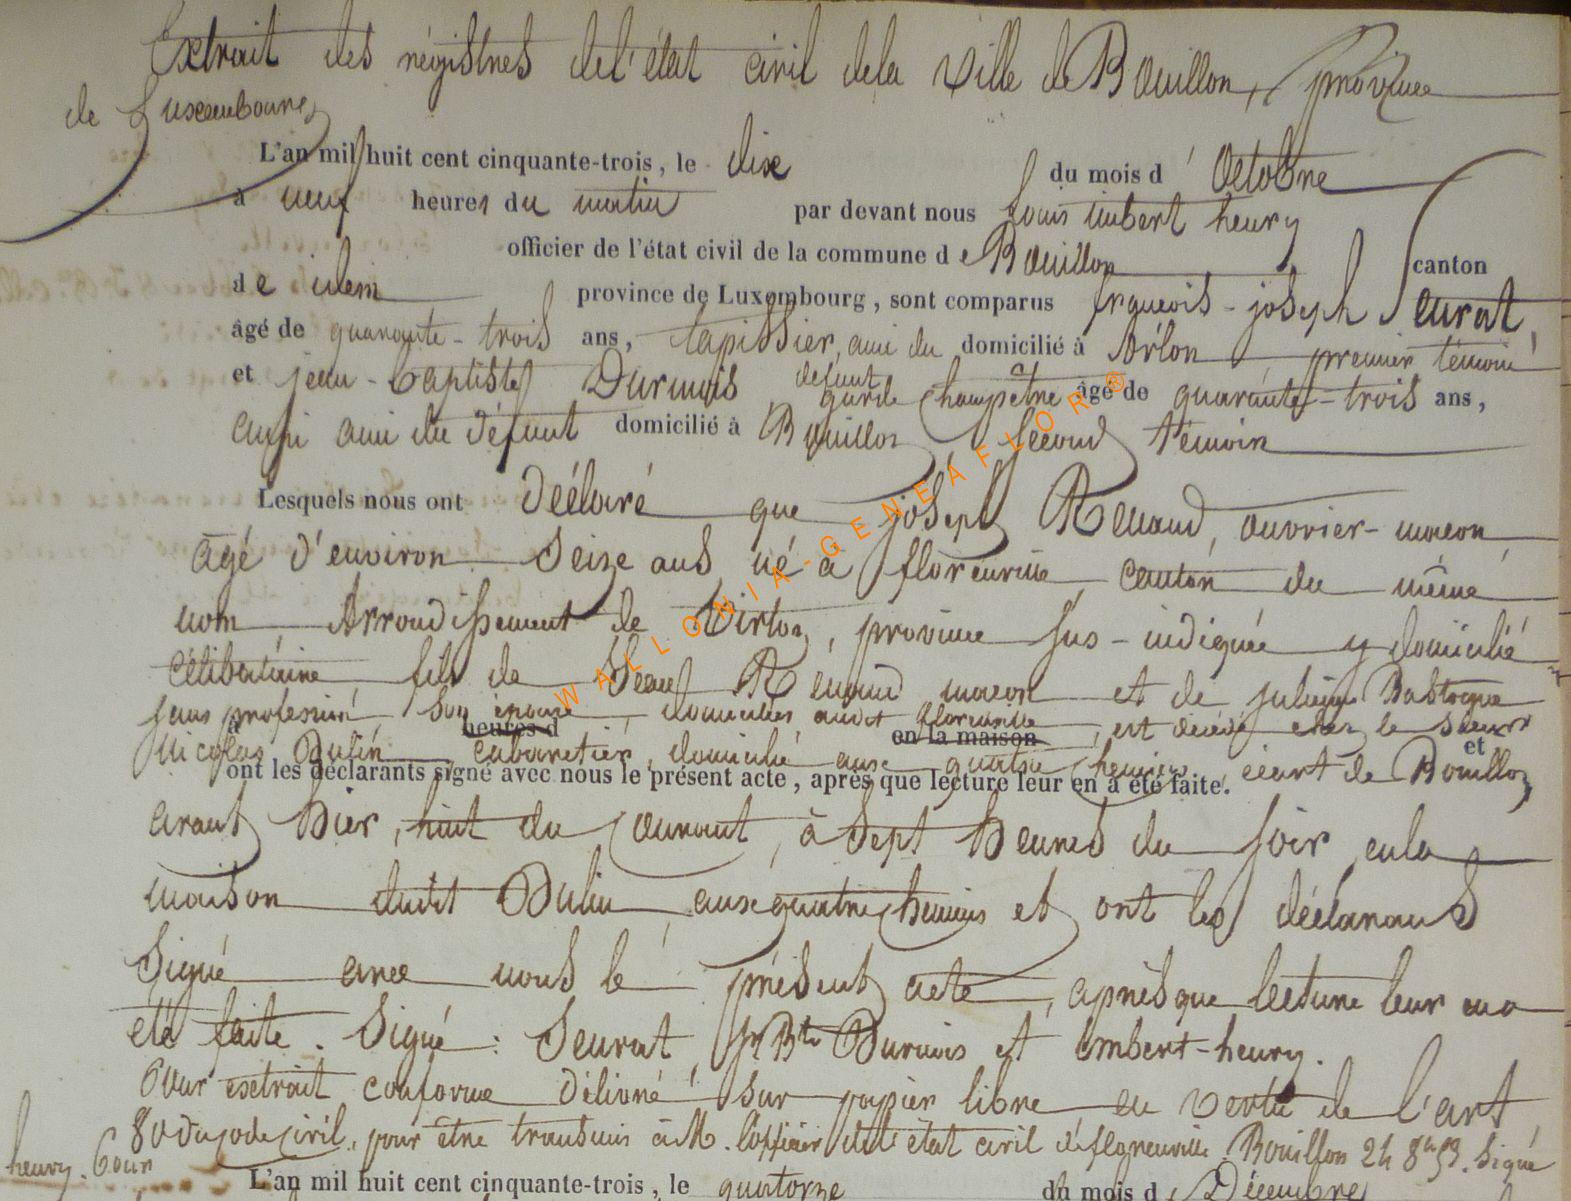 Extrait des régistres de l'état civil de la ville de Bouillon, province
de Luxembourg
L'an mil huit cent cinquante-trois, le dix du mois d'Octobre
à neuf heures du matin par devant nous Louis imbert henry
officier de l'état civil de la commune de Bouillon canton
de idem province de Luxembourg, sont comparus françois-joseph Seurat,
âgé de quarante-trois ans, tapissier, ami du défunt domicilié à Arlon premier témoin
et jean-baptiste Durnois garde champêtre âgé de quarante-trois ans,
aussi ami du défunt domicilié à Bouillon second témoin
Lesquels nous ont déclaré que joseph Renaud, ouvrier-maçon,
agé d'environ seize ans, né à florenville, canton du même
nom, Arrondissement de Virton, province sus-indiquée y domicilié
célibataire fils de Jean Renaud maçon et de julienne Bastogne
sans profession, son épouse, domiciliés audit florenville, est décédé chez le sieur
à heures d en la maison et
Nicolas Dulin, cabaretier, domicilié aux quatre chemins, écart de Bouillon,
ont les déclarants signé avec nous le présent acte, après que lecture leur en a été faite.
avant hier, huit du courant, à sept heures du soir, en la
maison dudit Dulin aux quatre chemins et ont les déclarans
signé avec nous le présent acte, après que lecture leur en a
été faite. Signé: Seurat, J Bte Durnois et imbert-henry.
Pour extrait conforme délivré sur papier libre en vertu de l'art
80 du code civil, pour être transmis à M. l'officier de l'état civil de florenville. Bouillon 24 8bre 53. Signé
henry. Pour
L'an mil huit cent cinquante-trois, le quatorze du mois de Décembre
WALLONIA-GENEAFLOR®